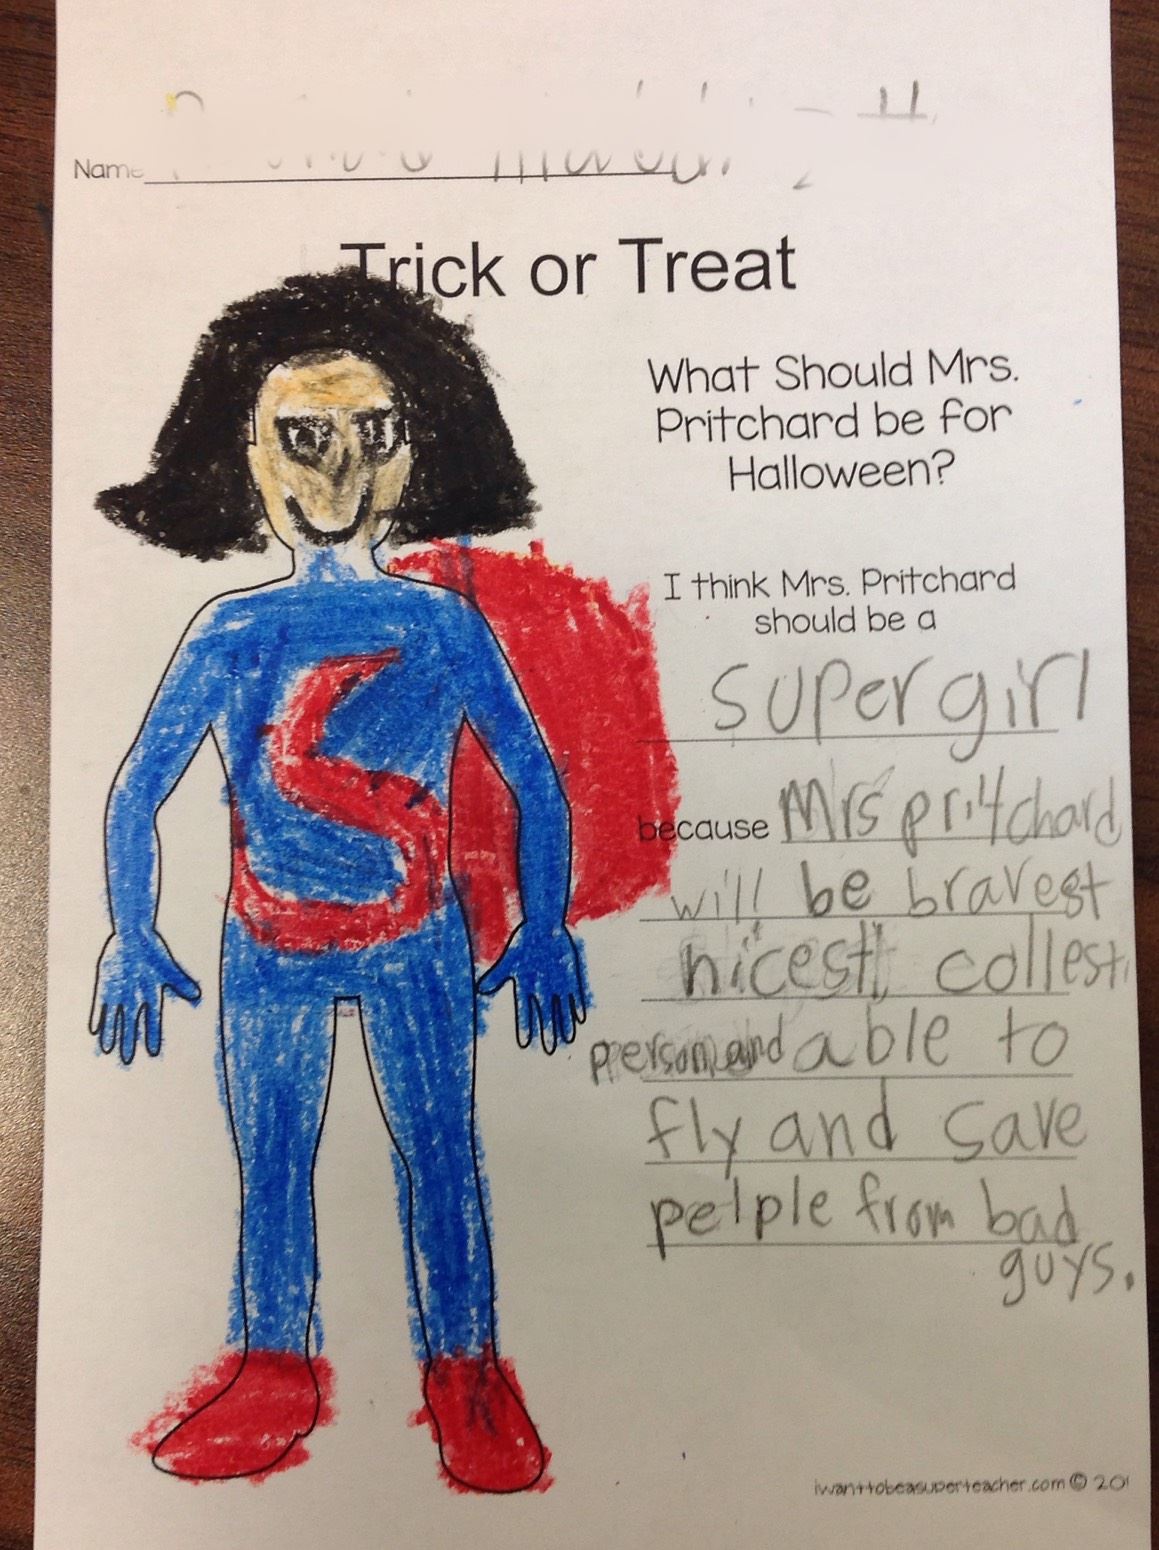 Name
Trick or Treat
What Should Mrs.
Pritchard be for
Halloween?
I think Mrs. Pritchard
should be a
supergirl
because Mrs pritchard
will be bravest
nicest, collest,
person and able to
fly and save
pelple from bad
guys.
S
iwanttobeasuperteacher.com © 201